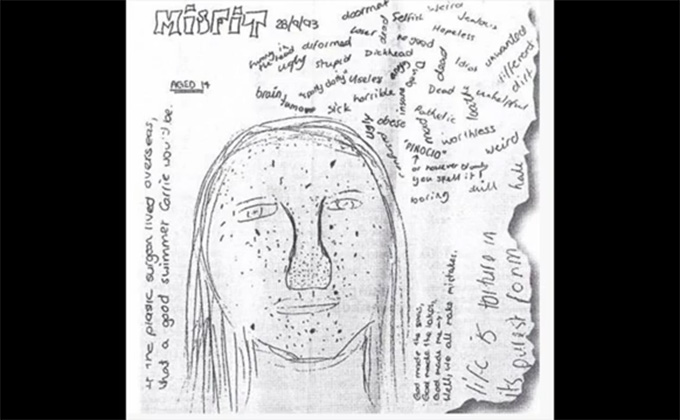 MiSFiT 28/9/93
AGED 14
doormat
weird
Selfish
Jealous
Loser
dead
no good
Hopeless
unwanted
different
dirt
funny in
the head
deformed
ugly
stupid
Dickhead
Dung
dead
Idiot
"spotty dotty"
Useless
brain
tumour
sick
horrible
insane
Dead
loathe
unhelpful
ugly
obese
mad
Pathetic
worthless
weird
"PINOCIO"
or however bloody
you spell it!
boring
dull
hate
If the plastic surgeon lived overseas,
what a good swimmer Carrie would be.
God made the sea,
God made the lakes,
God made me –
Well, we all make mistakes.
life is torture in
its purest form